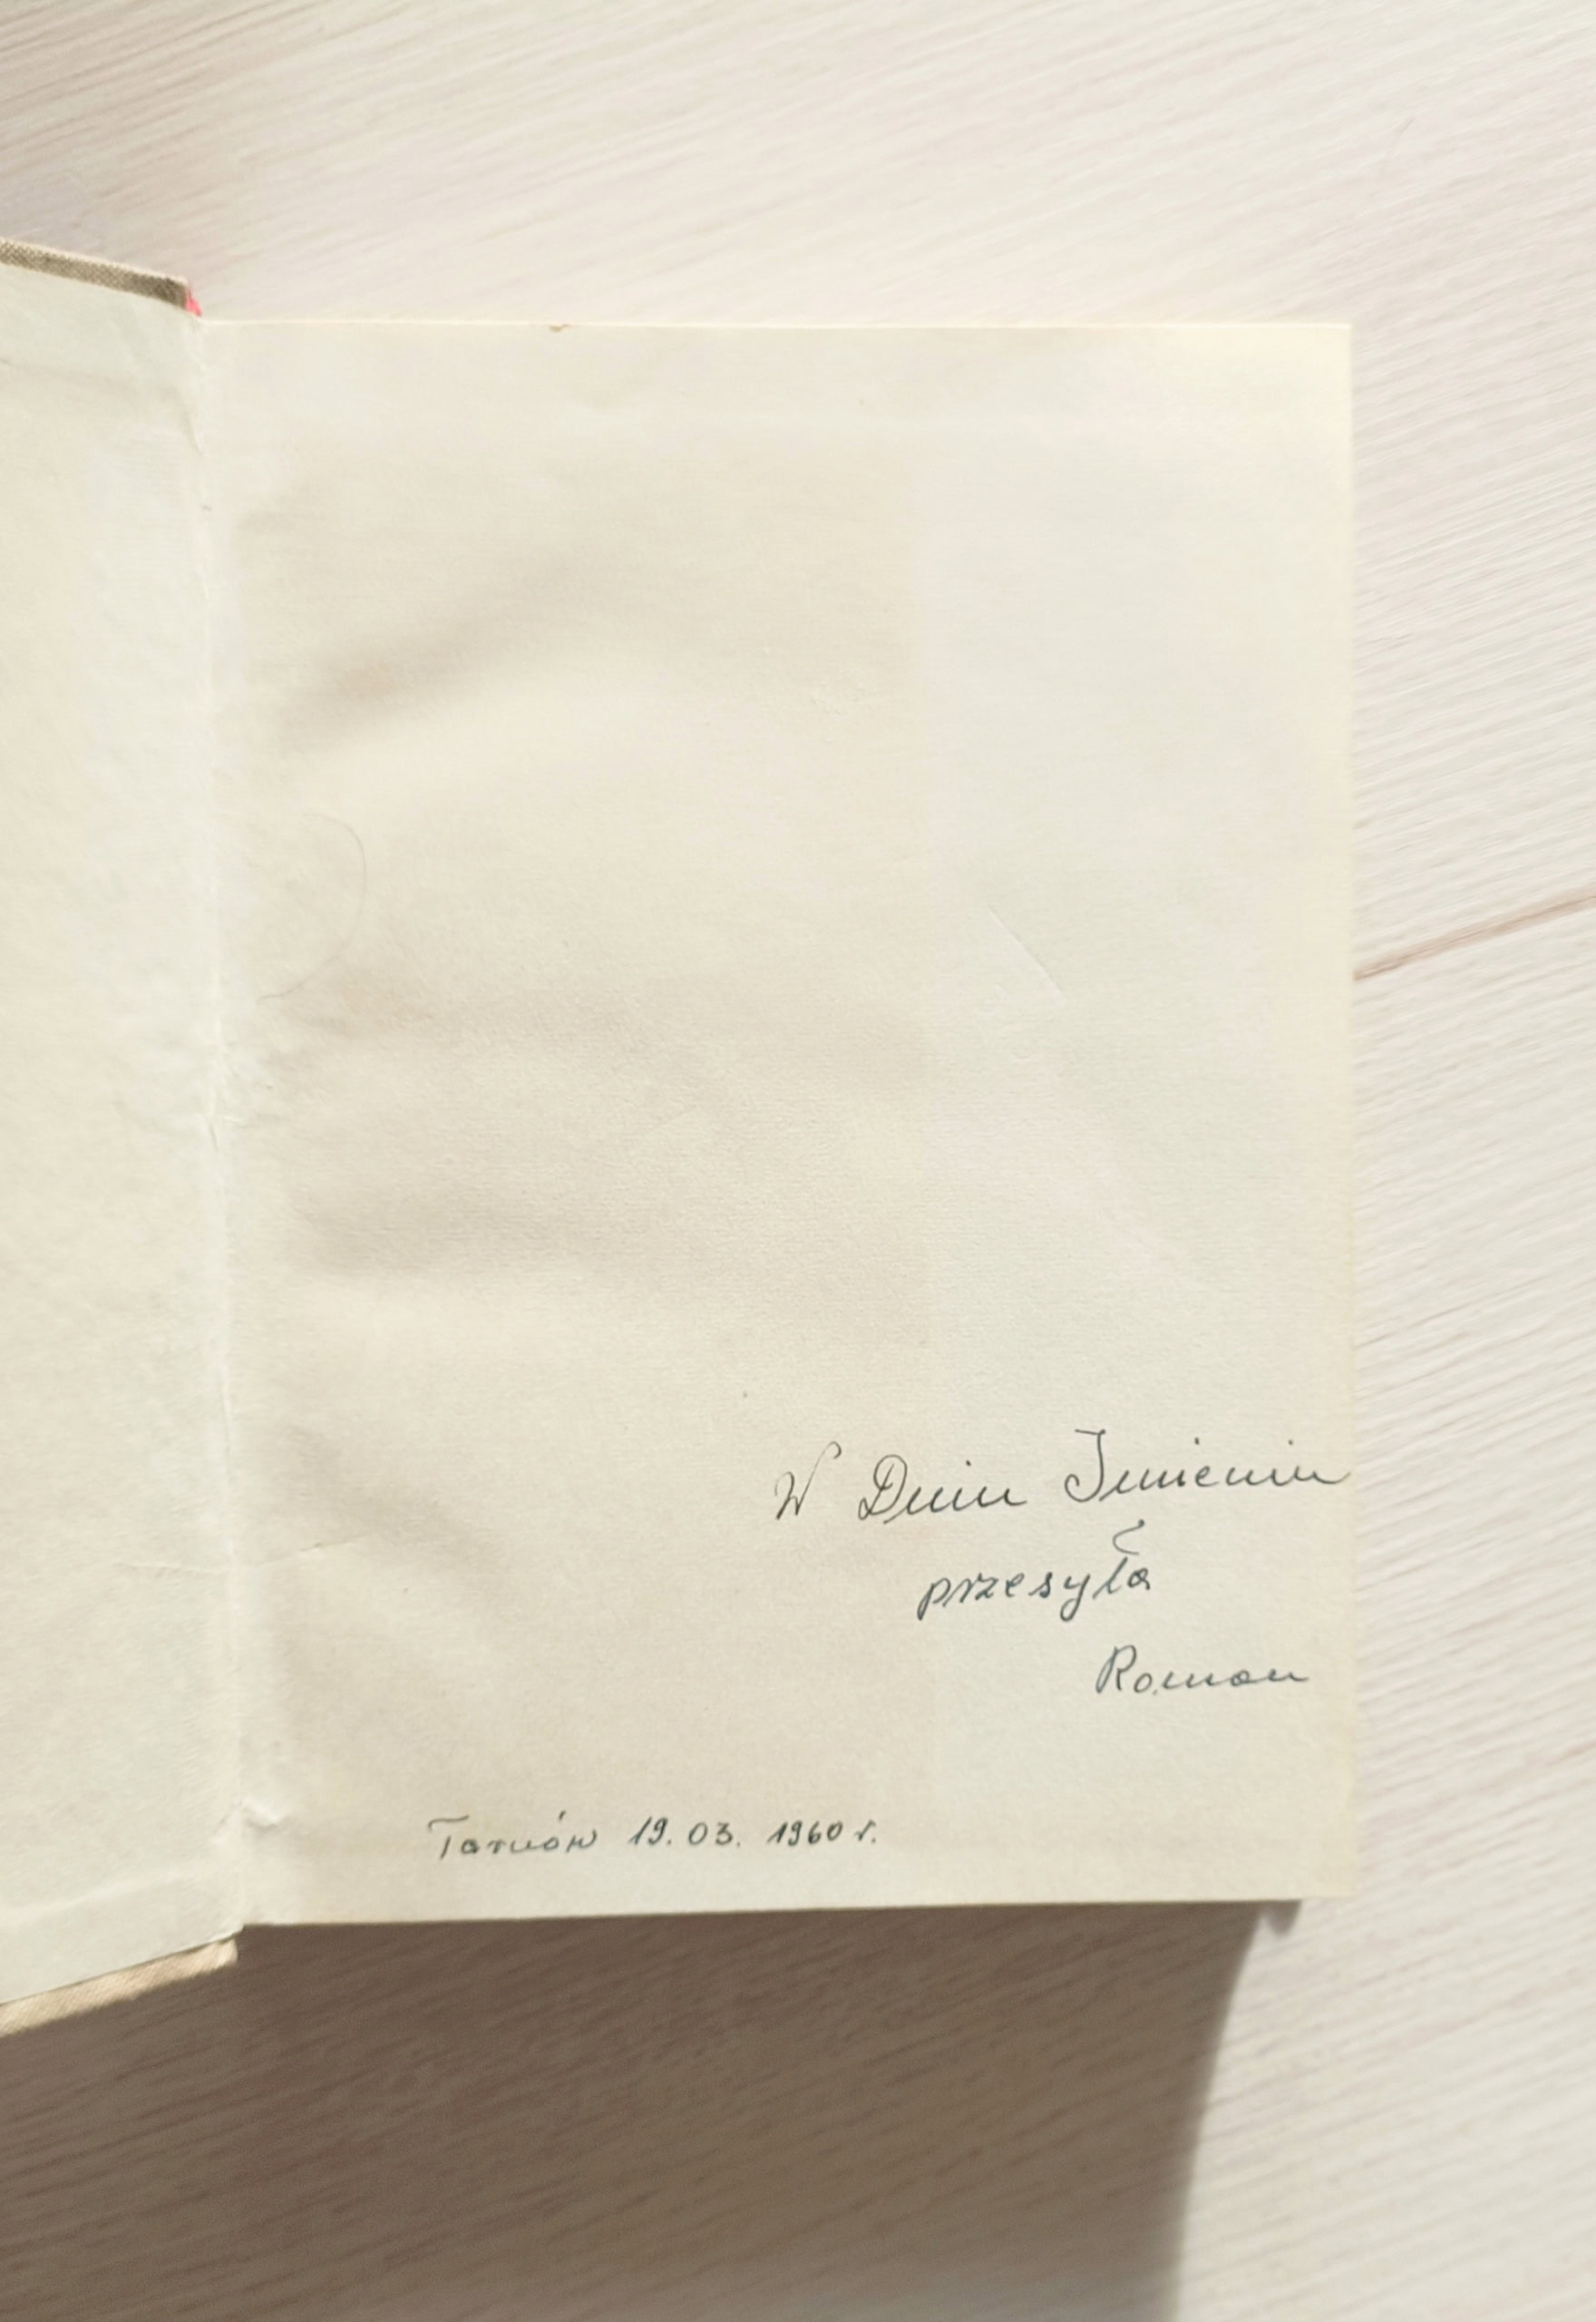 W Dniu Imienin
przesyła
Roman
Tarnów 19.03. 1960 r.